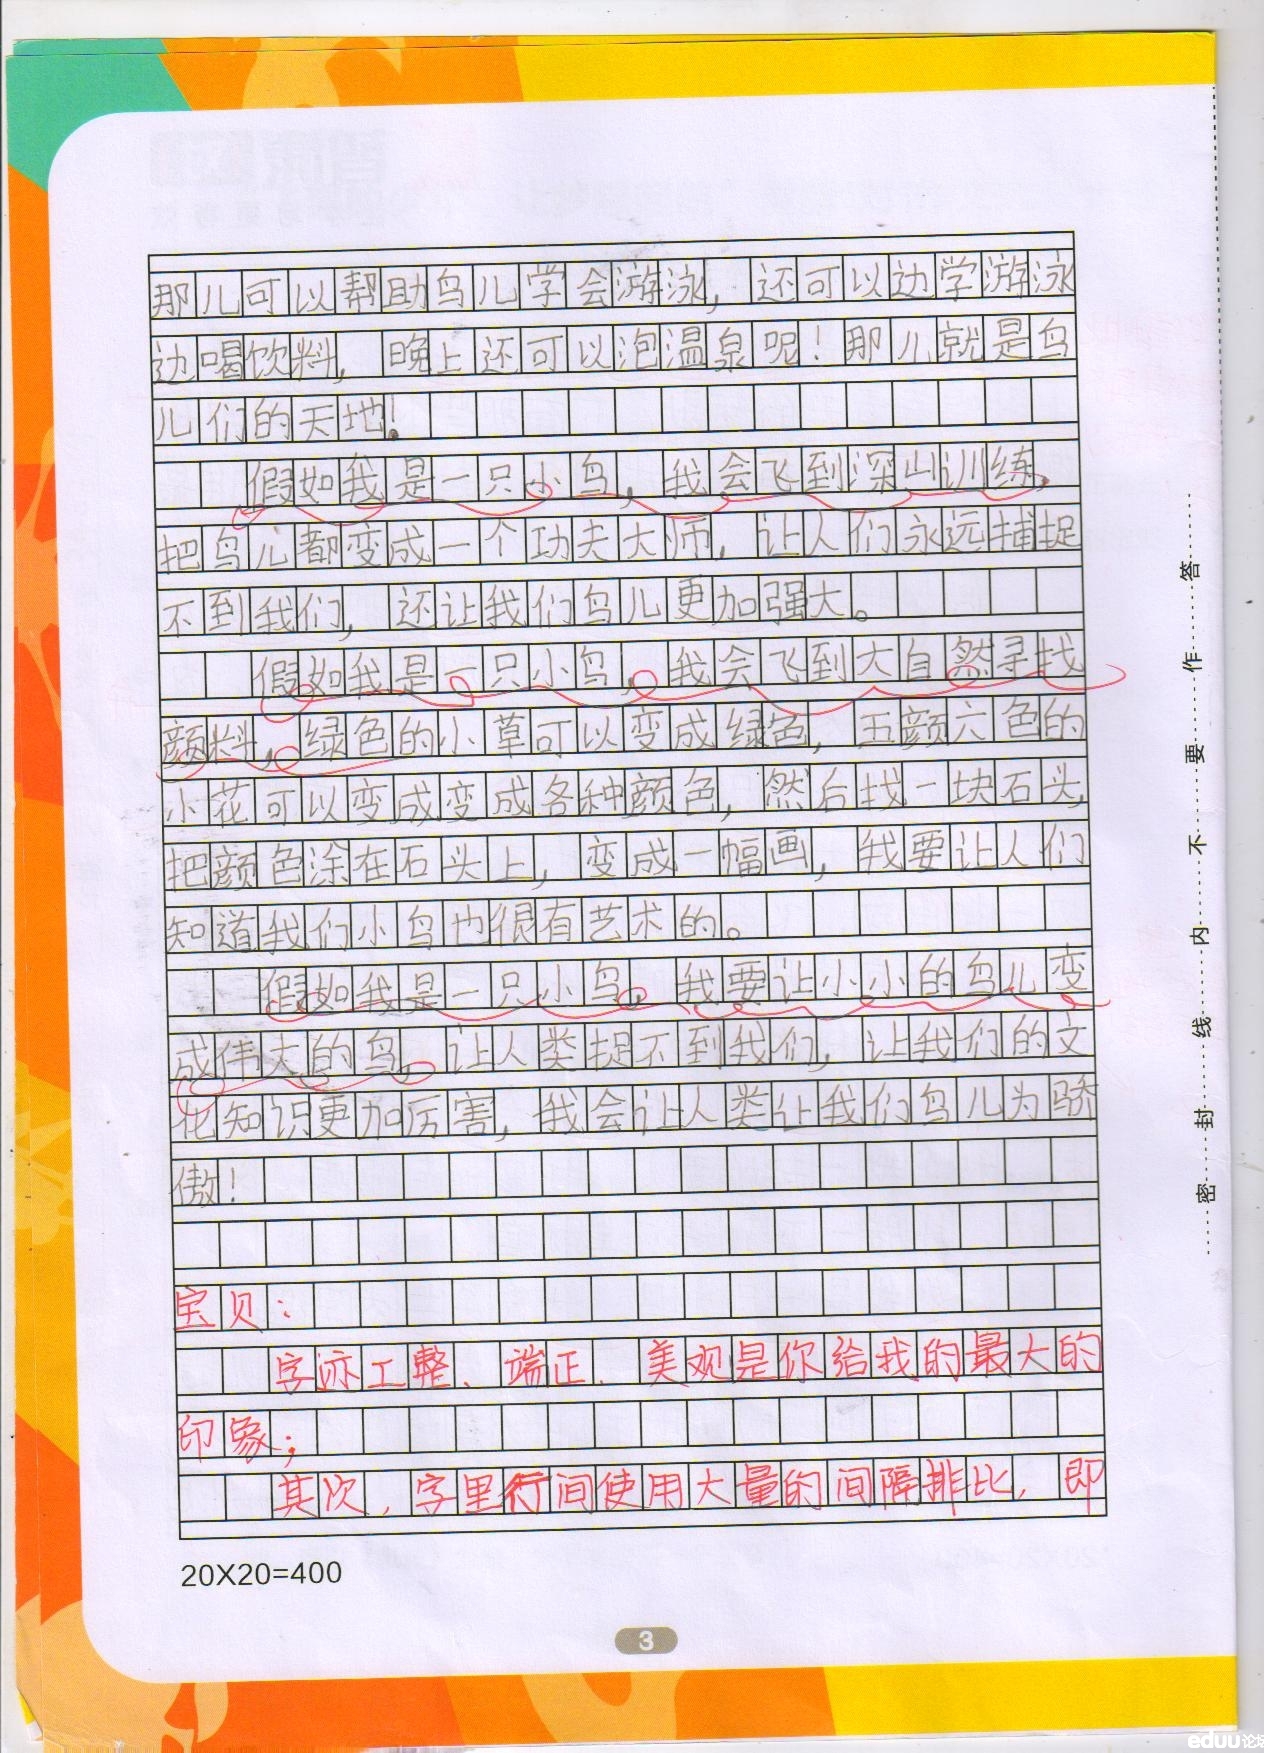 那儿可以帮助鸟儿学会游泳，还可以边学游泳
边喝饮料，晚上还可以泡温泉呢！那儿就是鸟
儿们的天地！
假如我是一只小鸟，我会飞到深山训练，
把鸟儿都变成一个功夫大师，让人们永远捕捉
不到我们，还让我们鸟儿更加强大。
假如我是一只小鸟，我会飞到大自然寻找
颜料，绿色的小草可以变成绿色，五颜六色的
小花可以变成变成各种颜色，然后找一块石头，
把颜色涂在石头上，变成一幅画，我要让人们
知道我们小鸟也很有艺术的。
假如我是一只小鸟，我要让小小的鸟儿变
成伟大的鸟，让人类捉不到我们，让我们的文
化知识更加厉害，我会让人类让我们鸟儿为骄
傲！
宝贝：
字迹工整、端正、美观是你给我的最大的
印象；
其次，字里行间使用大量的间隔排比，即
20X20=400
3
密封线内不要作答
eduu论坛